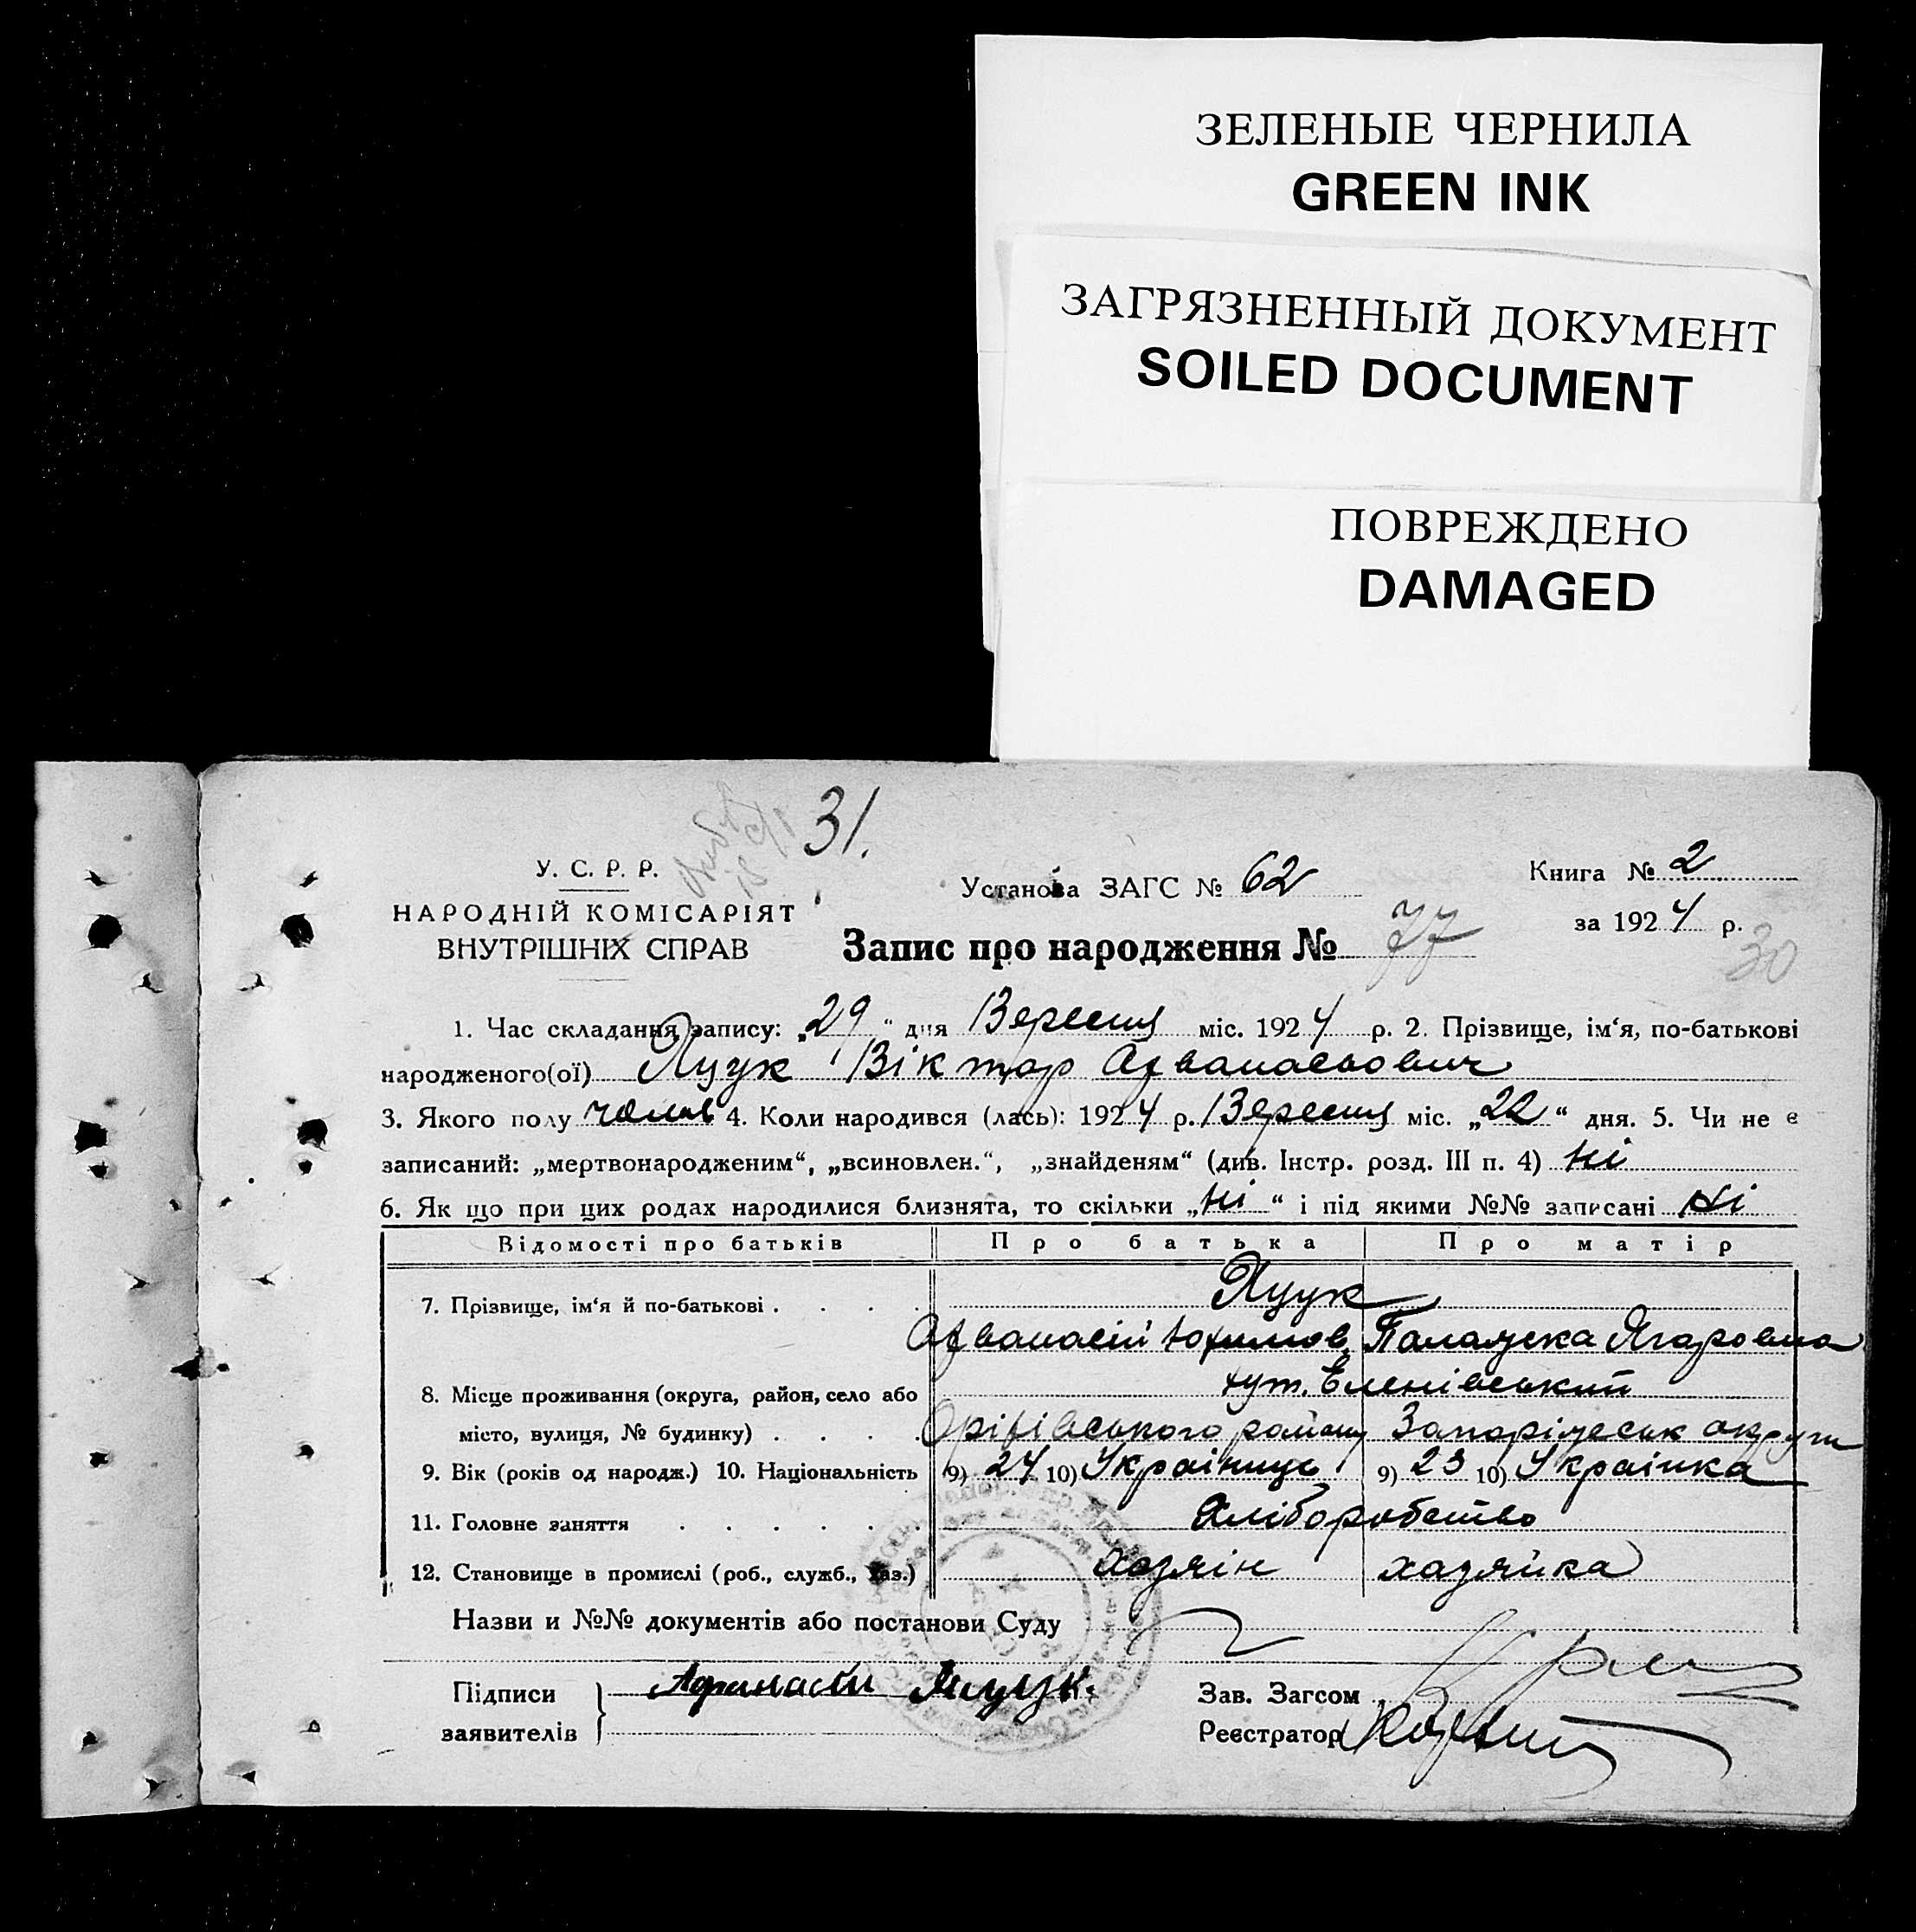 ЗЕЛЕНЫЕ ЧЕРНИЛА
GREEN INK
ЗАГРЯЗНЕННЫЙ ДОКУМЕНТ
SOILED DOCUMENT
ПОВРЕЖДЕНО
DAMAGED
31.
У. С. Р. Р.
НАРОДНІЙ КОМІСАРІЯТ
ВНУТРІШНІХ СПРАВ
Установа ЗАГС № 62
Книга № 2
за 1924 р.
Запис про народження № 77
30
1. Час складання запису: „29" дня Вересня міс. 1924 р. 2. Прізвище, ім'я, по-батькові
народженого(ої) Яцук Віктор Афванасьович
3. Якого полу чолов 4. Коли народився (лась): 1924 р. Вересня міс. „22" дня. 5. Чи не є
записаний: „мертвонародженим", „всиновлен.", „знайденям" (див. Інстр. розд. III п. 4) ні
6. Як що при цих родах народилися близнята, то скільки „ні" і під якими №№ записані ні
Відомості про батьків Про батька Про матір
7. Прізвище, ім'я й по-батькові . . . . Яцук
Афванасій Юхимов. Палажка Ягаровна
8. Місце проживання (округа, район, село або хут. Еленівський
місто, вулиця, № будинку) . . . . Оріхівського району Запоріжськ округи
9. Вік (років од народж.) 10. Національність 9) 24 10) Українць 9) 23 10) Українка
11. Головне заняття . . . . . . Хліборобство
12. Становище в промислі (роб., служб., хаз.) хазяін хазяйка
Назви и №№ документів або постанови Суду
Підписи
заявителів
Афанасий Яцук.
Зав. Загсом
Реєстратор